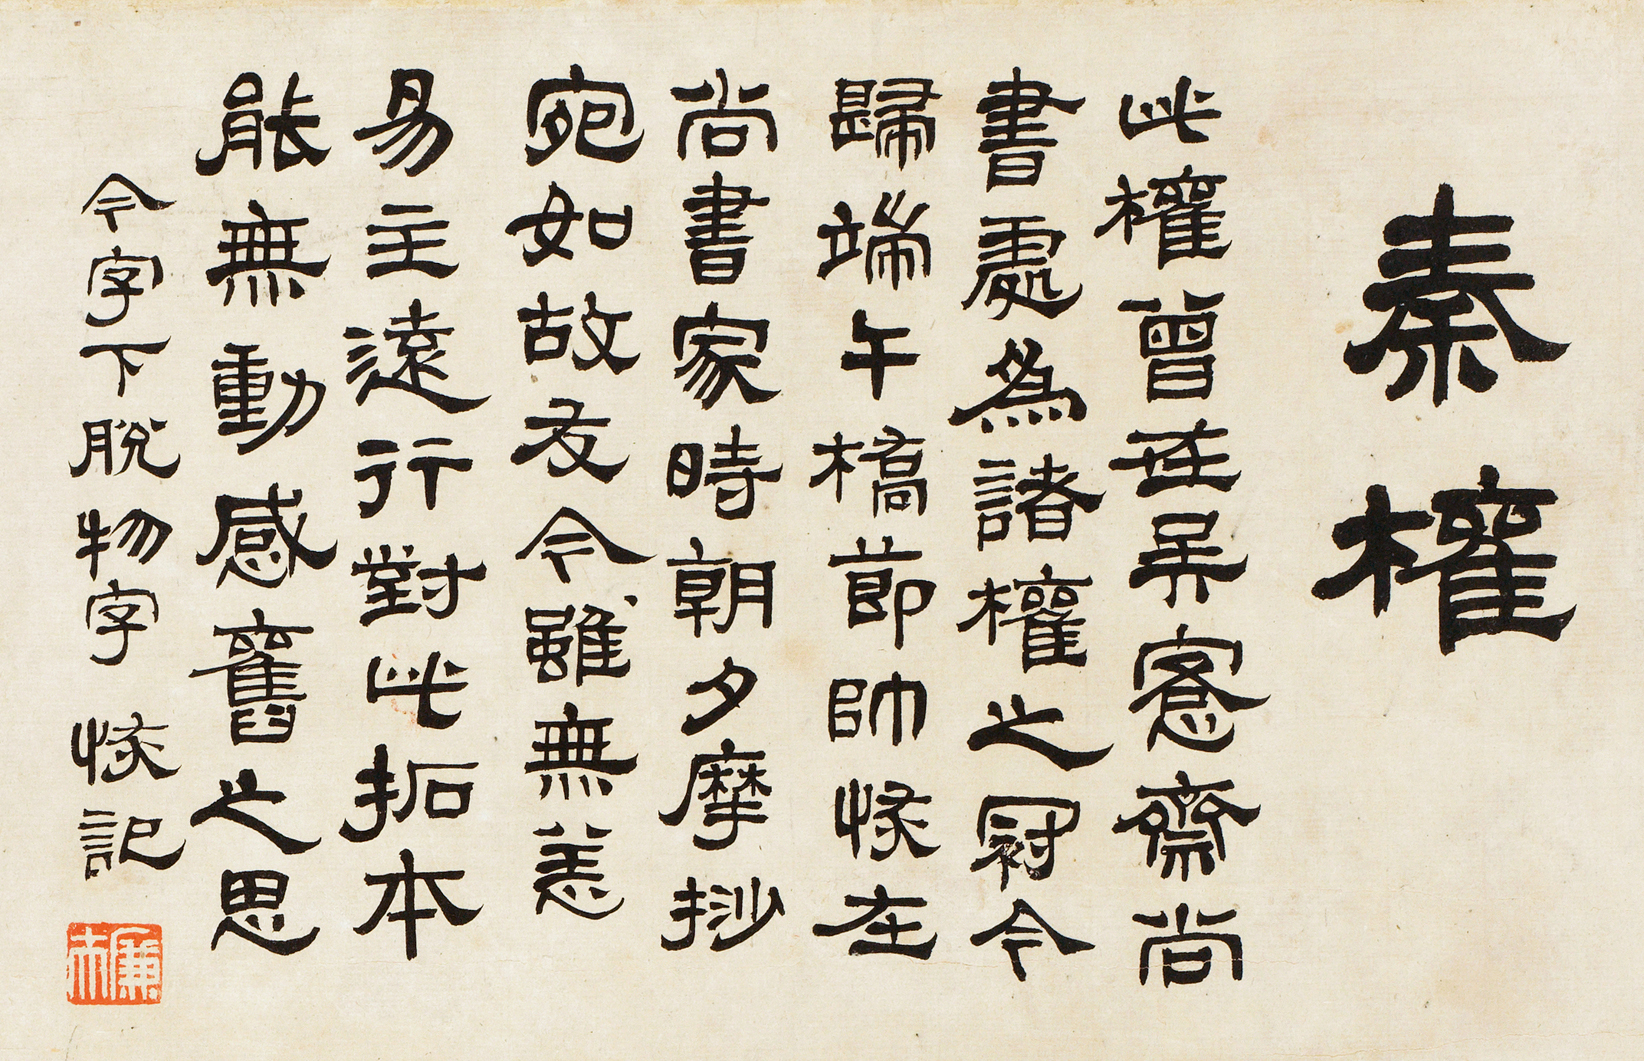 秦權
此權曾在吳愙齋尚
書處為諸權之冠今
歸端午橋節帥悇在
尚書家時朝夕摩抄
宛如故友今雖無恙
易主遠行對此拓本
能無動感舊之思
今字下脫物字 悇記